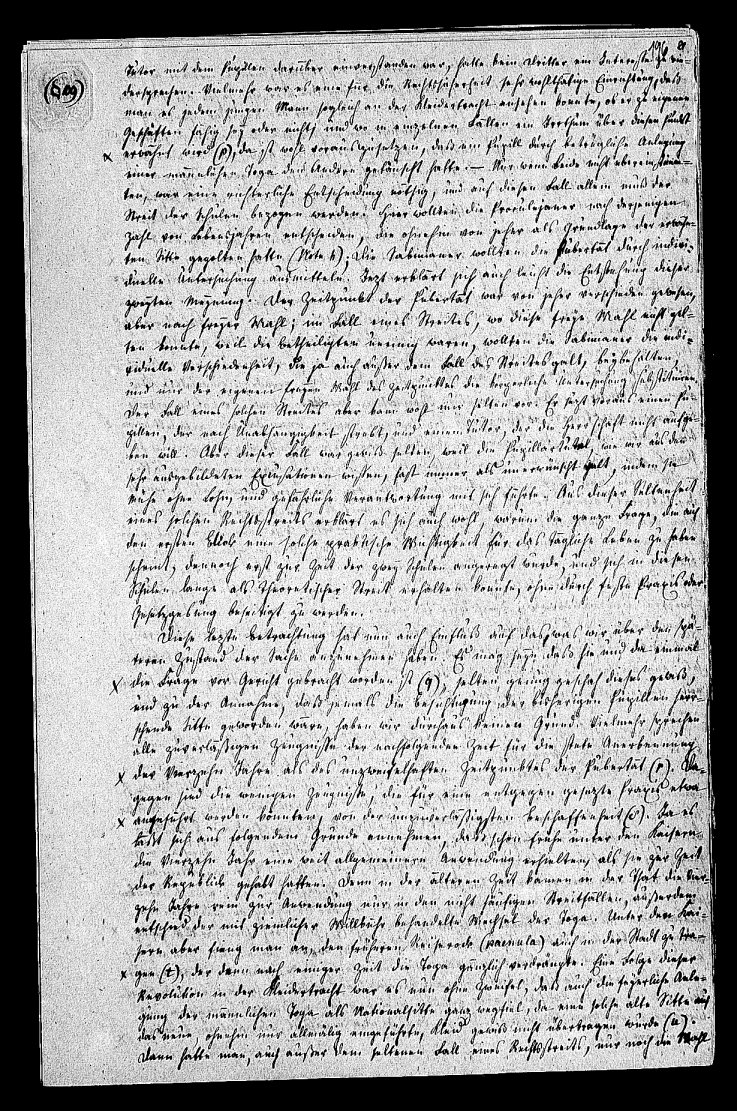 196
(509)
Tutor mit dem Pupillen darüber einverstanden war, hatte kein Dritter ein Interesse zu wi-
dersprechen. Vielmehr war es eine für die Rechtssicherheit sehr wohlthätige Einrichtung, daß
man es jedem jungen Mann sogleich an der Kleidertracht ansehen konnte, ob er zu eigenen
Geschäften fähig sey oder nicht; und wo in einzelnen Fällen ein Irrthum über diesen Punkt
x erwähnt wird (p), da ist wohl vorauszusetzen, daß ein Pupill durch betrügliche Anlegung
einer männlichen Toga den Andern getäuscht hatte. — Nur wenn beide nicht übereinstimm-
ten, war eine richterliche Entscheidung nöthig, und auf diesen Fall allein muß der
Streit der Schulen bezogen werden. Hier wollten die Proculejaner nach derjenigen
Zahl von Lebensjahren entscheiden, die ohnehin von jeher als Grundlage der erwähn-
ten Sitte gegolten hatte (Note k); die Sabinianer wollten die Pubertät durch indivi-
duelle Untersuchung ausmitteln. Jezt erklärt sich auch leicht die Entstehung dieser
zweyten Meynung. Der Zeitpunkt der Pubertät war von jeher verschieden gewesen,
aber nach freyer Wahl; im Fall eines Streites, wo diese freye Wahl nicht gel-
ten konnte, weil die Betheiligten uneinig waren, wollten die Sabinianer die indi-
viduelle Verschiedenheit, die ja auch außer dem Fall des Streites galt, beybehalten,
und nur der eigenen freyen Wahl des Zeitpunktes die körperliche Untersuchung substituiren.
Der Fall eines solchen Streites aber kam wohl nur selten vor. Er sezt voraus einen Pu-
pillen, der nach Unabhängigkeit strebt, und einen Tutor, der die Herrschaft nicht aufge-
ben will. Aber dieser Fall war gewiß selten, weil die Pupillartutel, wie wir aus den
sehr ausgebildeten Excusationen wissen, fast immer als unerwünscht galt, indem sie
Mühe ohne Lohn, und gefährliche Verantwortung mit sich führte. Aus dieser Seltenheit
eines solchen Rechtsstreits erklärt es sich auch wohl, warum die ganze Frage, die auf
den ersten Blick eine solche praktische Wichtigkeit für das tägliche Leben zu haben
scheint, dennoch erst zur Zeit der zwey Schulen angeregt wurde, und sich in diesen
Schulen lange als theoretischer Streit erhalten konnte, ohne durch feste Praxis oder
Gesetzgebung beseitigt zu werden.
Diese lezte Betrachtung hat nun auch Einfluß auf das, was wir über den spä-
teren Zustand der Sache anzunehmen haben. Es mag seyn, daß hie und da einmal
x die Frage vor Gericht gebracht worden ist (q), selten genug geschah dieses gewiß,
und zu der Annahme, daß jemals die Besichtigung der bisherigen Pupillen herr-
schende Sitte geworden wäre, haben wir durchaus keinen Grund. Vielmehr sprechen
alle zuverlässigen Zeugnisse der nachfolgenden Zeit für die stete Anerkennung
x der vierzehn Jahre als des unzweifelhaften Zeitpunktes der Pubertät (r). Da-
gegen sind die wenigen Zeugnisse, die für eine entgegen gesezte Praxis etwa
x angeführt werden könnten, von der unzuverlässigsten Beschaffenheit (s). Ja es
läßt sich aus folgendem Grunde annehmen, daß schon frühe unter den Kaisern
die vierzehn Jahr eine weit allgemeinere Anwendung erhielten, als sie zur Zeit
der Republik gehabt hatten. Denn in der älteren Zeit kamen in der That die vier-
zehn Jahre rein zur Anwendung nur in den nicht häufigen Streitfällen, außerdem
entschied der mit ziemlicher Willkühr behandelte Wechsel der Toga. Unter den Kai-
sern aber fieng man an, den früheren Reiserock (paenula) auch in der Stadt zu tra-
x gen (t), der dann nach einiger Zeit die Toga gänzlich verdrängte. Eine Folge dieser
Revolution in der Kleidertracht war es nun ohne Zweifel, daß auch die feyerliche Anle-
gung der männlichen Toga als Nationalsitte ganz wegfiel, da eine solche alte Sitte auf
das neue, ohnehin nur allmälig eingeführte, Kleid gewiß nicht übertragen wurde (u).
Dann hatte man, auch außer dem seltenen Fall eines Rechtsstreits, nur noch die Wahl